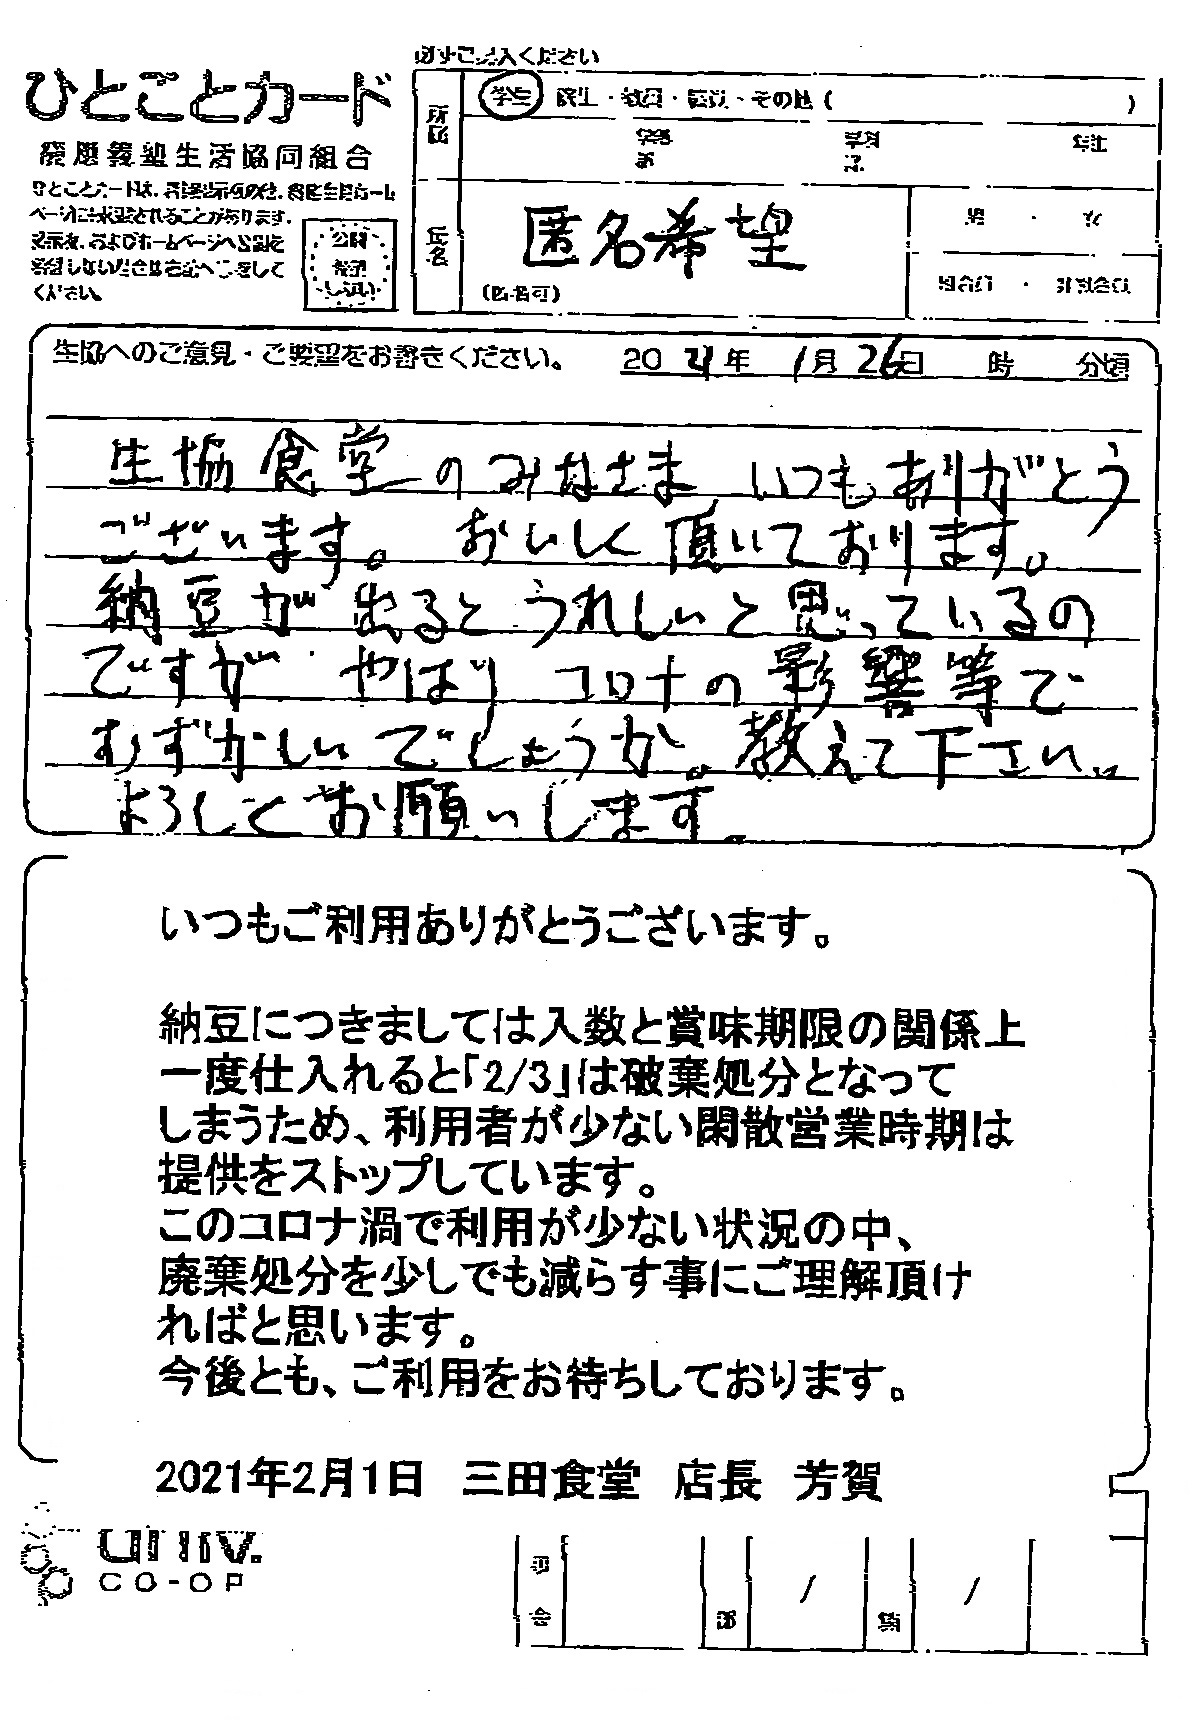 必ずご記入ください
ひとことカード
慶應義塾生活協同組合
ページに掲載されることがあります。
ください。
公開
希望
しない
所属
学生 院生・教員・職員・その他( )
学部
学科
年生
氏名
匿名希望
(匿名可)
男 ・ 女
組合員 ・ 非組合員
生協へのご意見・ご要望をお書きください。 2021年 1月26日 時 分頃
生協食堂のみなさま いつもありがとう
ございます。 おいしく頂いております。
納豆が出るとうれしいと思っているの
ですが やはり コロナの影響等で
むずかしいでしょうか。教えて下さい。
よろしくお願いします。
いつもご利用ありがとうございます。
納豆につきましては入数と賞味期限の関係上
一度仕入れると「2/3」は破棄処分となって
しまうため、利用者が少ない閑散営業時期は
提供をストップしています。
このコロナ渦で利用が少ない状況の中、
廃棄処分を少しでも減らす事にご理解頂け
ればと思います。
今後とも、ご利用をお待ちしております。
2021年2月1日 三田食堂 店長 芳賀
univ.
CO-OP
/ /